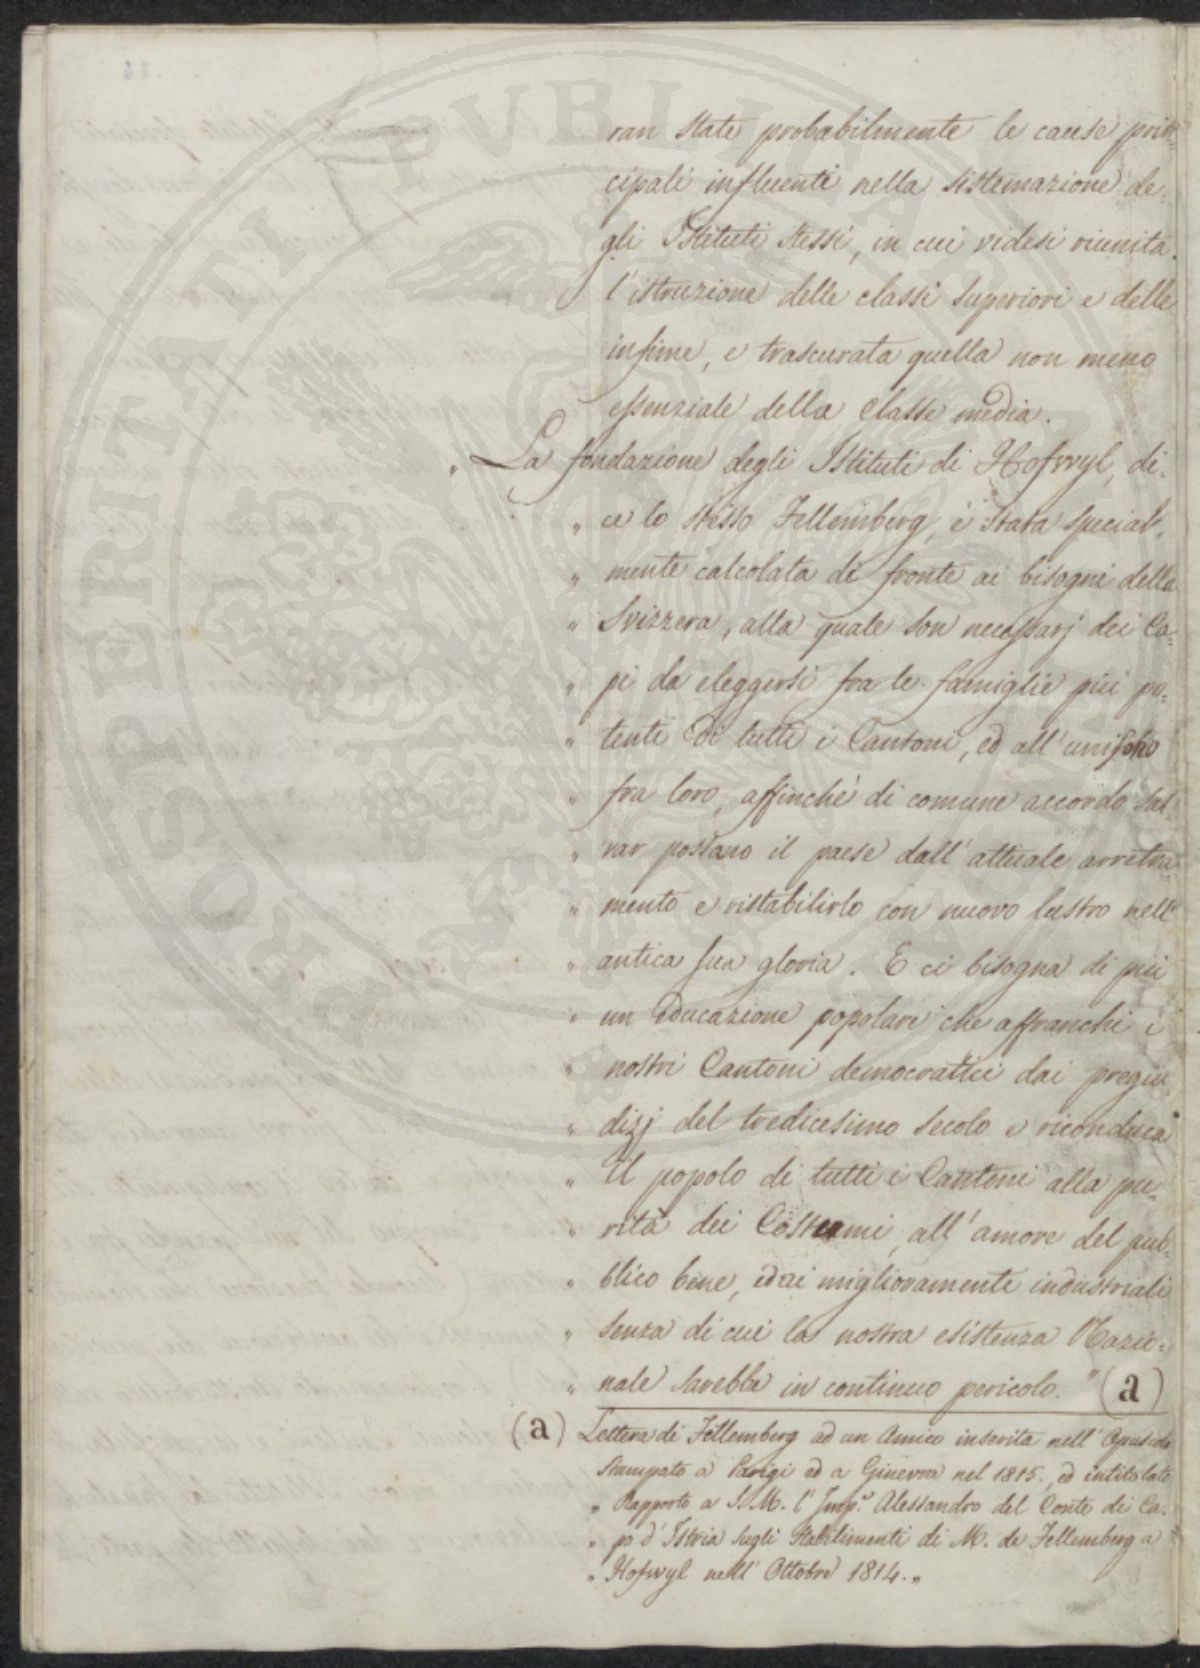 ran state probabilmente le cause prin-
cipali influenti nella sistemazione de-
gli Istituti stessi, in cui videsi riunita
l'istruzione delle classi superiori e delle
infime, e trascurata quella non meno
essenziale della Classe media.
" La fondazione degli Istituti di Hofwyl, di-
" ce lo stesso Fellemberg, è stata special-
" mente calcolata di fronte ai bisogni della
" Svizzera, alla quale son necessarj dei Ca-
" pi da eleggersi fra le famiglie più po-
" tenti di tutti i Cantoni, ed all'unisono
" fra loro, affinchè di comune accordo sal-
" var possano il paese dall'attuale arretra-
" mento e ristabilirlo con nuovo lustro nell'
" antica sua gloria. E ci bisogna di più
" un educazione popolare che affranchi i
" nostri Cantoni democratici dai pregiu-
" dizj del tredicesimo secolo e riconduca
" il popolo di tutti i Cantoni alla pu-
" rità dei Costumi, all'amore del pub-
" blico bene, ed ai miglioramenti industriali
" senza di cui la nostra esistenza Nazio-
" nale sarebbe in continuo pericolo. " (a)
(a) Lettera di Fellemberg ad un Amico inserita nell'Opuscolo
stampato a Parigi ed a Ginevra nel 1815., ed intitolato
" Rapporto a S. M. l'Imp.e Alessandro del Conte di Ca-
" po d'Istria sugli Stabilimenti di M. de Fellemberg a
" Hofwyl nell'Ottobre 1814. "
PROSPERITATI PUBLICAE